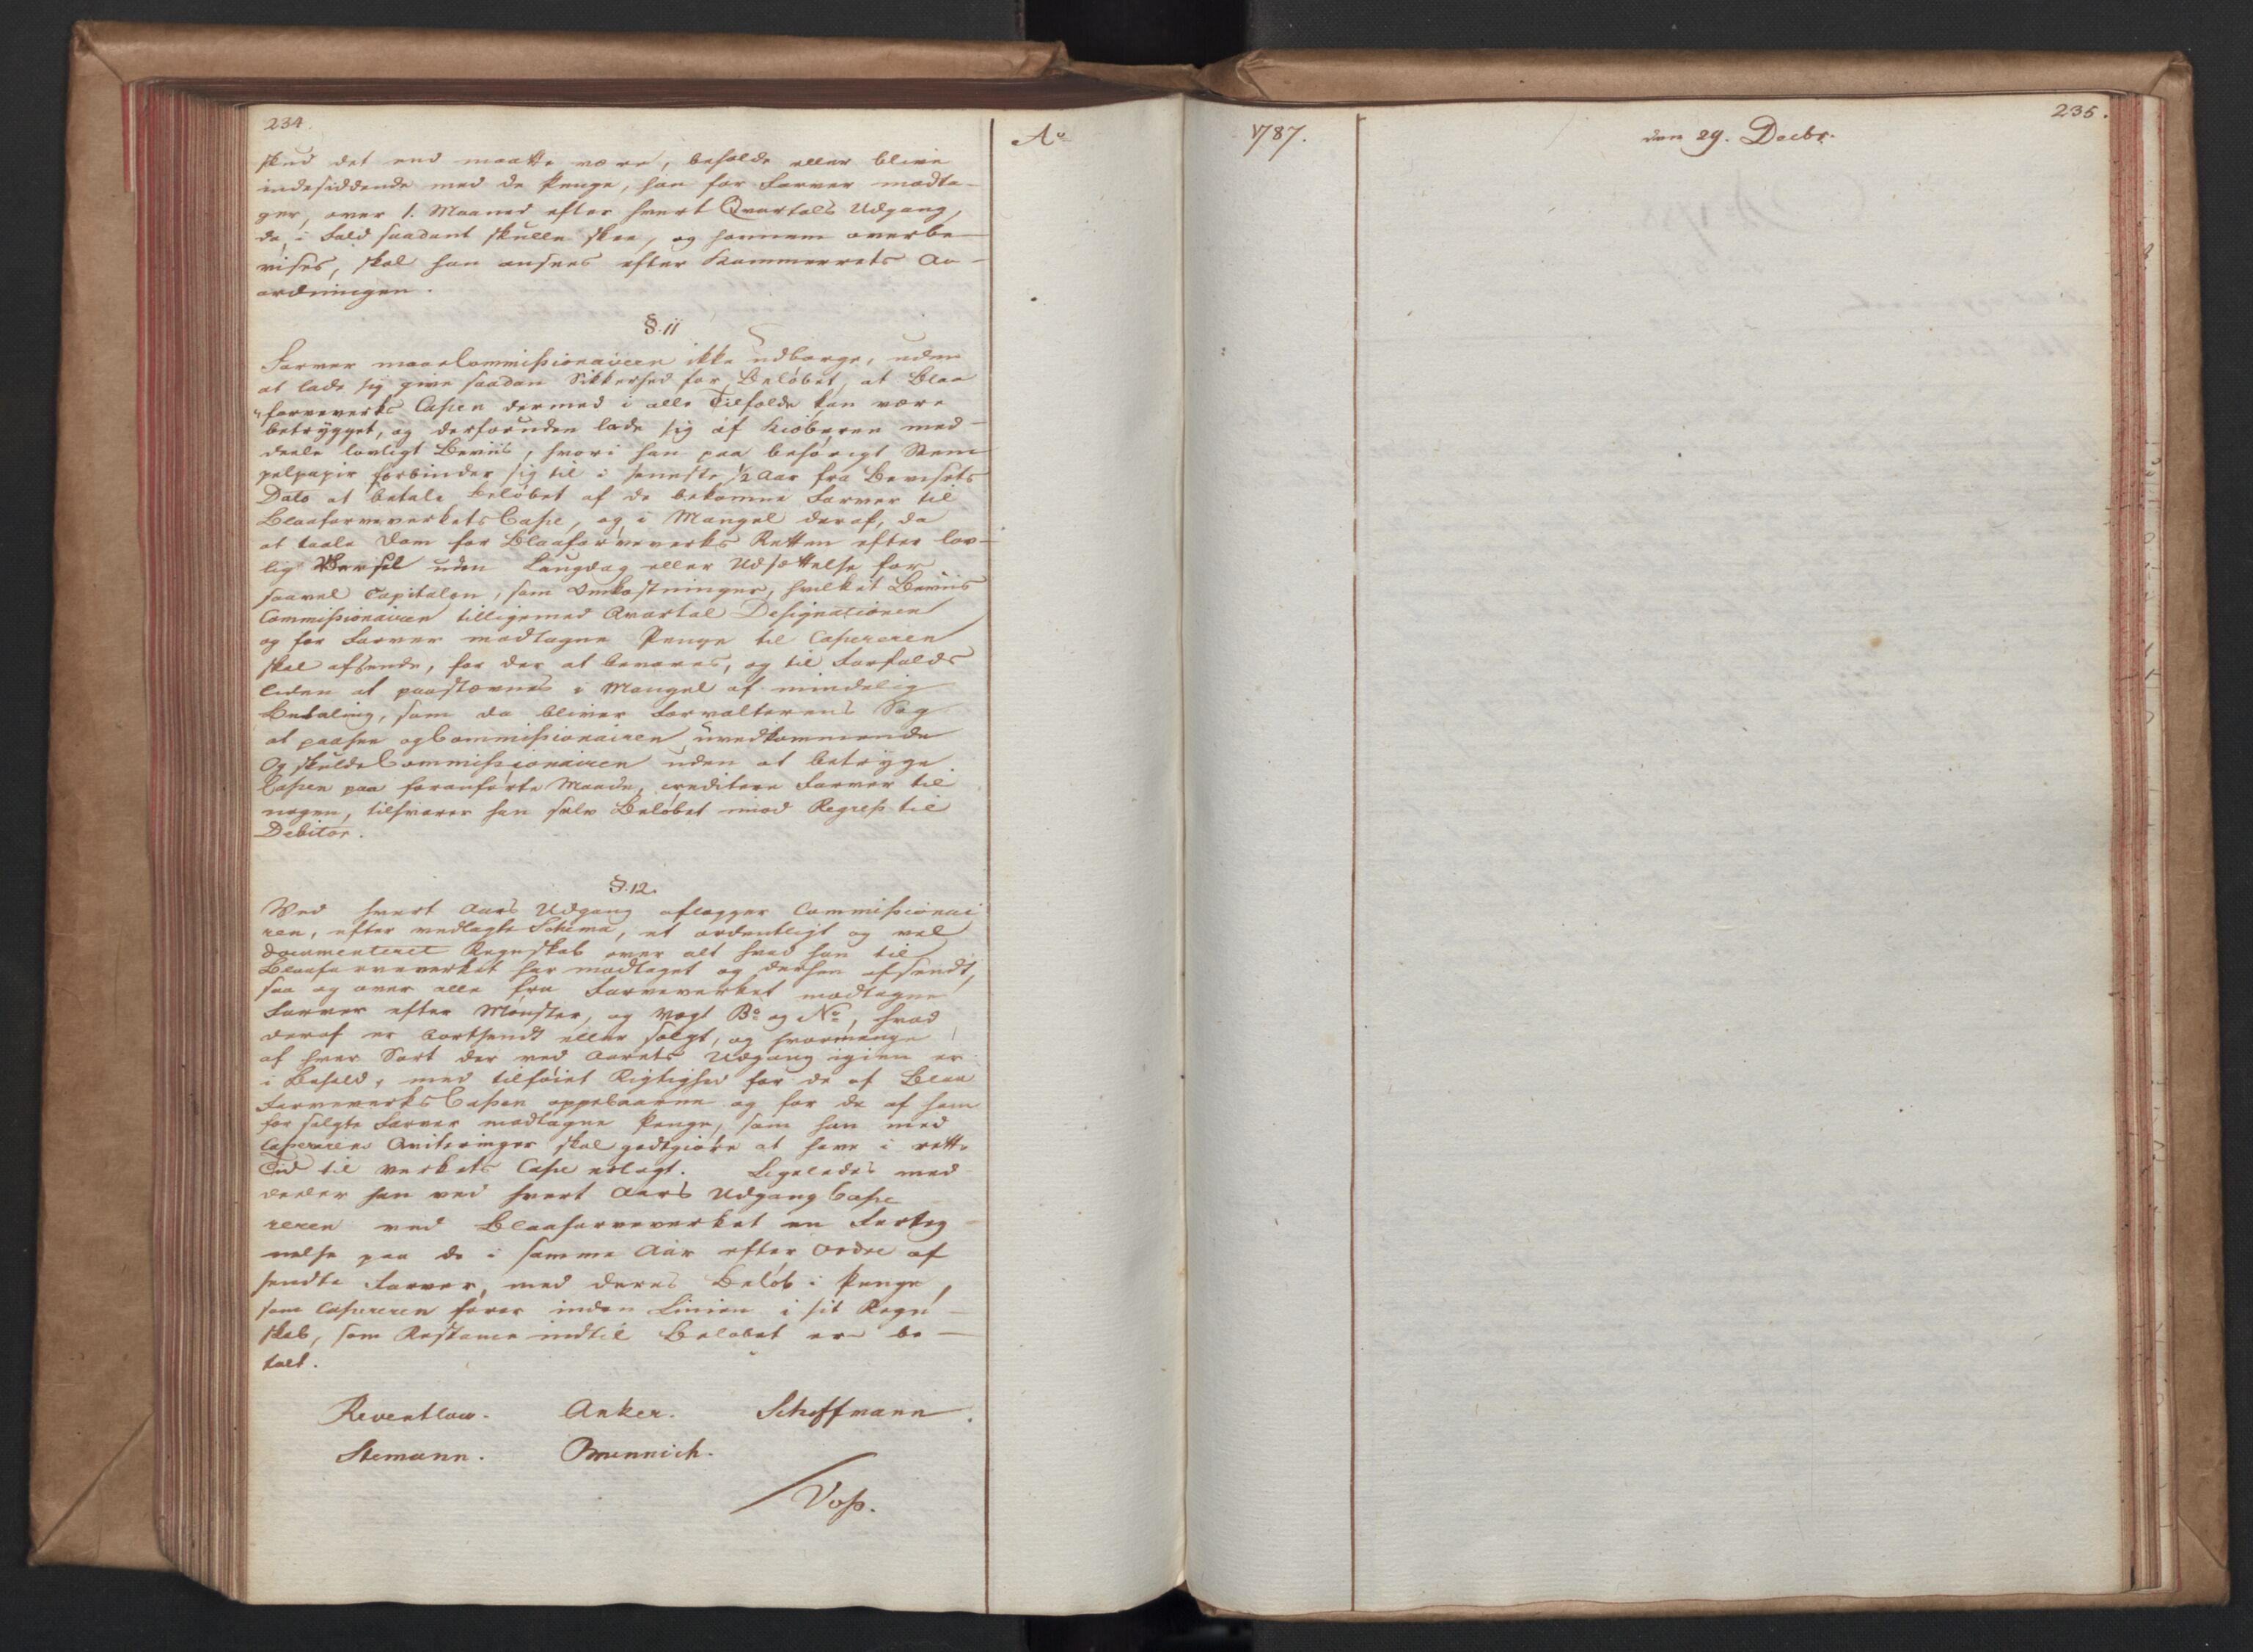 234.
Ao
skud det end maatte være, beholde eller blive
indesiddende med de Penge, han for Farver modta-
ger, over 1. Maaned efter hvert Qvartals Udgang,
da, i Fald saadant skulle skee, og hannem overbe-
vises, skal han ansees efter Kammerrets An-
ordningen.
§. 11
Farver maae Commissionairen ikke udborge, uden
at lade sig give saadan Sikkerhed for Beløbet, at Blaa
farveverks Cassen dermed i alle Tilfælde kan være
betrygget, og desforuden lade sig af Kiøberen med-
deele lovligt Beviis, hvori han paa behørigt Stem
pelpapir forbinder sig til i seneste ½ Aar fra Bevisets
Dato at betale Beløbet af de bekomne Farver til
Blaafarveverkets Casse, og i Mangel deraf, da
at taale Dom for Blaafarveverks Retten efter lov-
lig Varsel uden Laugdag eller Udsættelse for
saavel Capitalen, som Omkostninger, hvilket Beviis
Commissionairen tilligemed Qvartal Designationen
og for Farver modtagne Penge til Cassereren
skal afsende, for der at bevares, og til Forfalds
tiden at paastævnes i Mangel af mindelig
Betaling, som da bliver Forvalterens Sag
at paasee og Commissionairen uvedkommende
Og skulde Commissionairen uden at betryge
Cassen paa foranførte Maade, creditere Farver til
nogen, tilsvarer han selv Beløbet mod Regress til
Debitor.
§. 12.
Ved hvert Aars Udgang aflægger Commissionai
ren, efter vedlagte Schema, et ordentligt og vel
documenteret Regnskab over alt hvad han til
Blaafarveverket har modtaget og derhen afsendt,
saa og over alle fra Farveverket modtagne
Farver efter Mønster, og Vægt Bo og No, hvad
deraf er bortsendt eller solgt, og hvormange
af hver Sort der ved Aarets Udgang igien er
i Behold, med tilføiet Rigtighed for de af Blaa
Farveverks Cassen oppebaarne og for de af ham
for solgte Farver modtagne Penge, som han med
Cassererens Qviteringer skal godtgiøre at have i rette
Tid til Verkets Casse erlagt. Ligeledes med-
deeler han ved hvert Aars Udgang Casse
reren ved Blaafarveverket en Forteg-
nelse paa de i samme Aar efter Ordre af
sendte Farver, med deres Beløb i Penge,
som Cassereren fører inden Linien i sit Regn-
skab, som Restance indtil Beløbet er be-
talt.
Reventlow. Anker. Schoffmann.
Stemann. Brünnich.
Voss.
1787.
den 29. Decbr.
235.